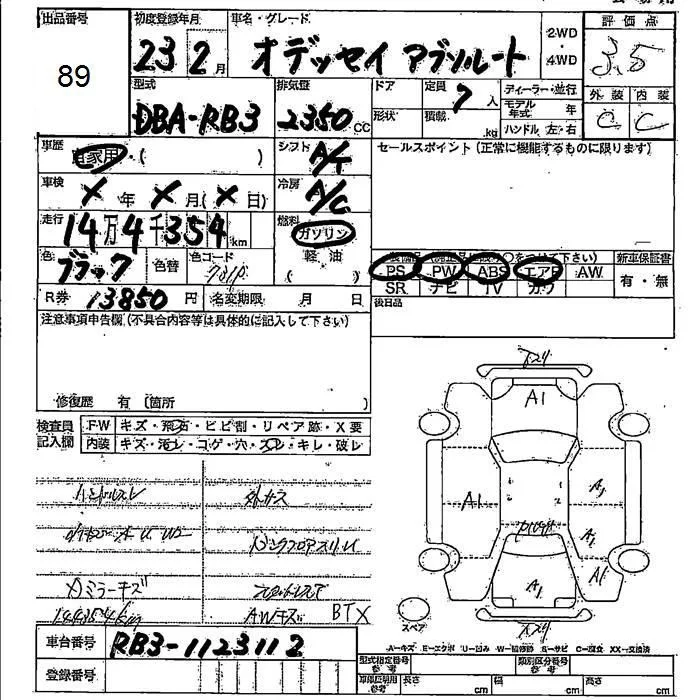 出品番号 初度登録年月 車名・グレード 評価点
89 23 2月 オデッセイ アブソルート 2WD・4WD 3.5
型式 排気量 ドア 定員 7人 ディーラー・並行 外装 内装
DBA-RB3 2350cc 形状 積載 kg モデル年式 年 C C
ハンドル 左・右
車歴 自家用・( ) シフト A/T セールスポイント(正常に機能するものに限ります)
車検 X年 X月(X日) 冷房 A/C
走行 14万4千354km 燃料 ガソリン
色 ブラック 色替 色コード 軽油 ( )
PS PW ABS エアB AW 新車保証書
SR ナビ TV カワ 有・無
R券 13850円 名変期限 月 日 後日品
注意事項申告欄(不具合内容等は具体的に記入して下さい)
修復歴 有(箇所 )
検査員記入欄 FW キズ・飛石・ヒビ割・リペア跡・X要
内装 キズ・汚レ・コゲ・穴・スレ・キレ・破レ
A1
A1 A1
A1
A1
A1
ハンドルスレ
ミラーキズ
AWキズ BTX
スペア
A-キズ E-エクボ U-凹み W-補修跡 S-サビ C-腐食 XX-交換済
車台番号 RB3-1123112
登録番号
型式指定番号 参考 類別区分番号 参考
車検証明用参考 長さ cm 幅 cm 高さ cm